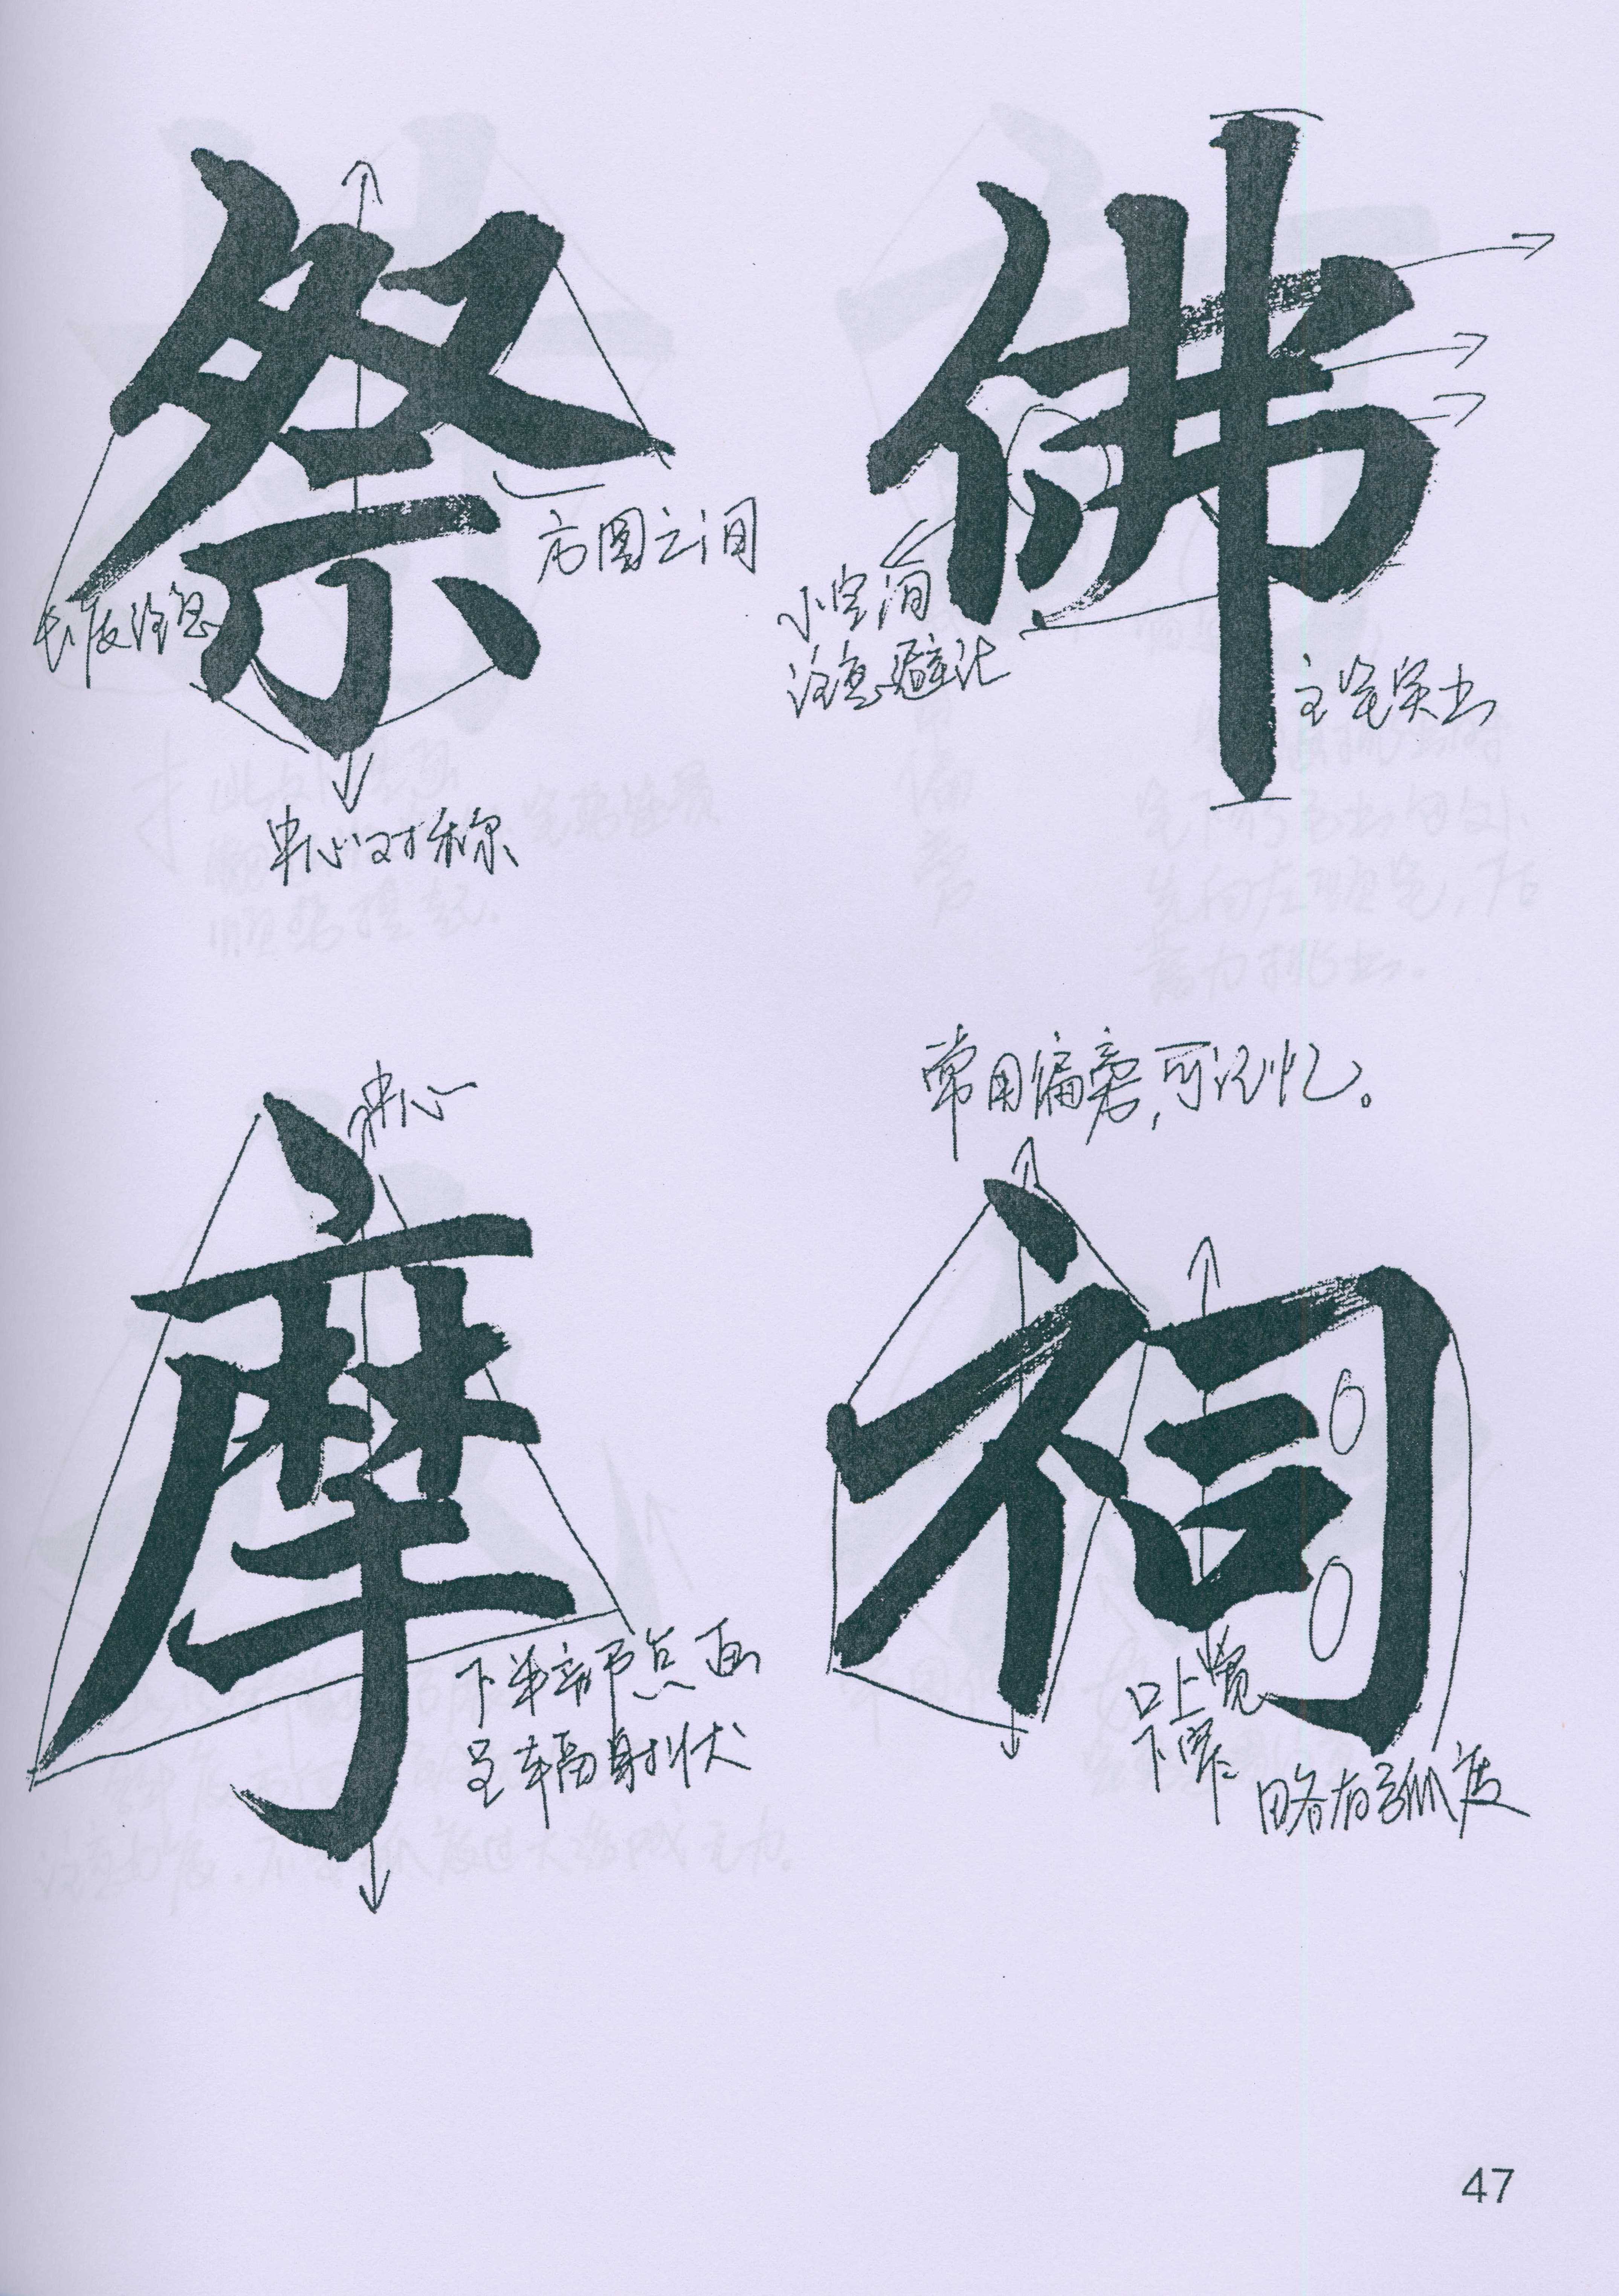 祭
方圆之间
长度注意
中心对称
佛
小空间
注意避让
主笔突出
中心
摩
下半部点画
呈车辐射状
常用偏旁,可记忆。
祠
口上宽
下窄
略有弧度
47